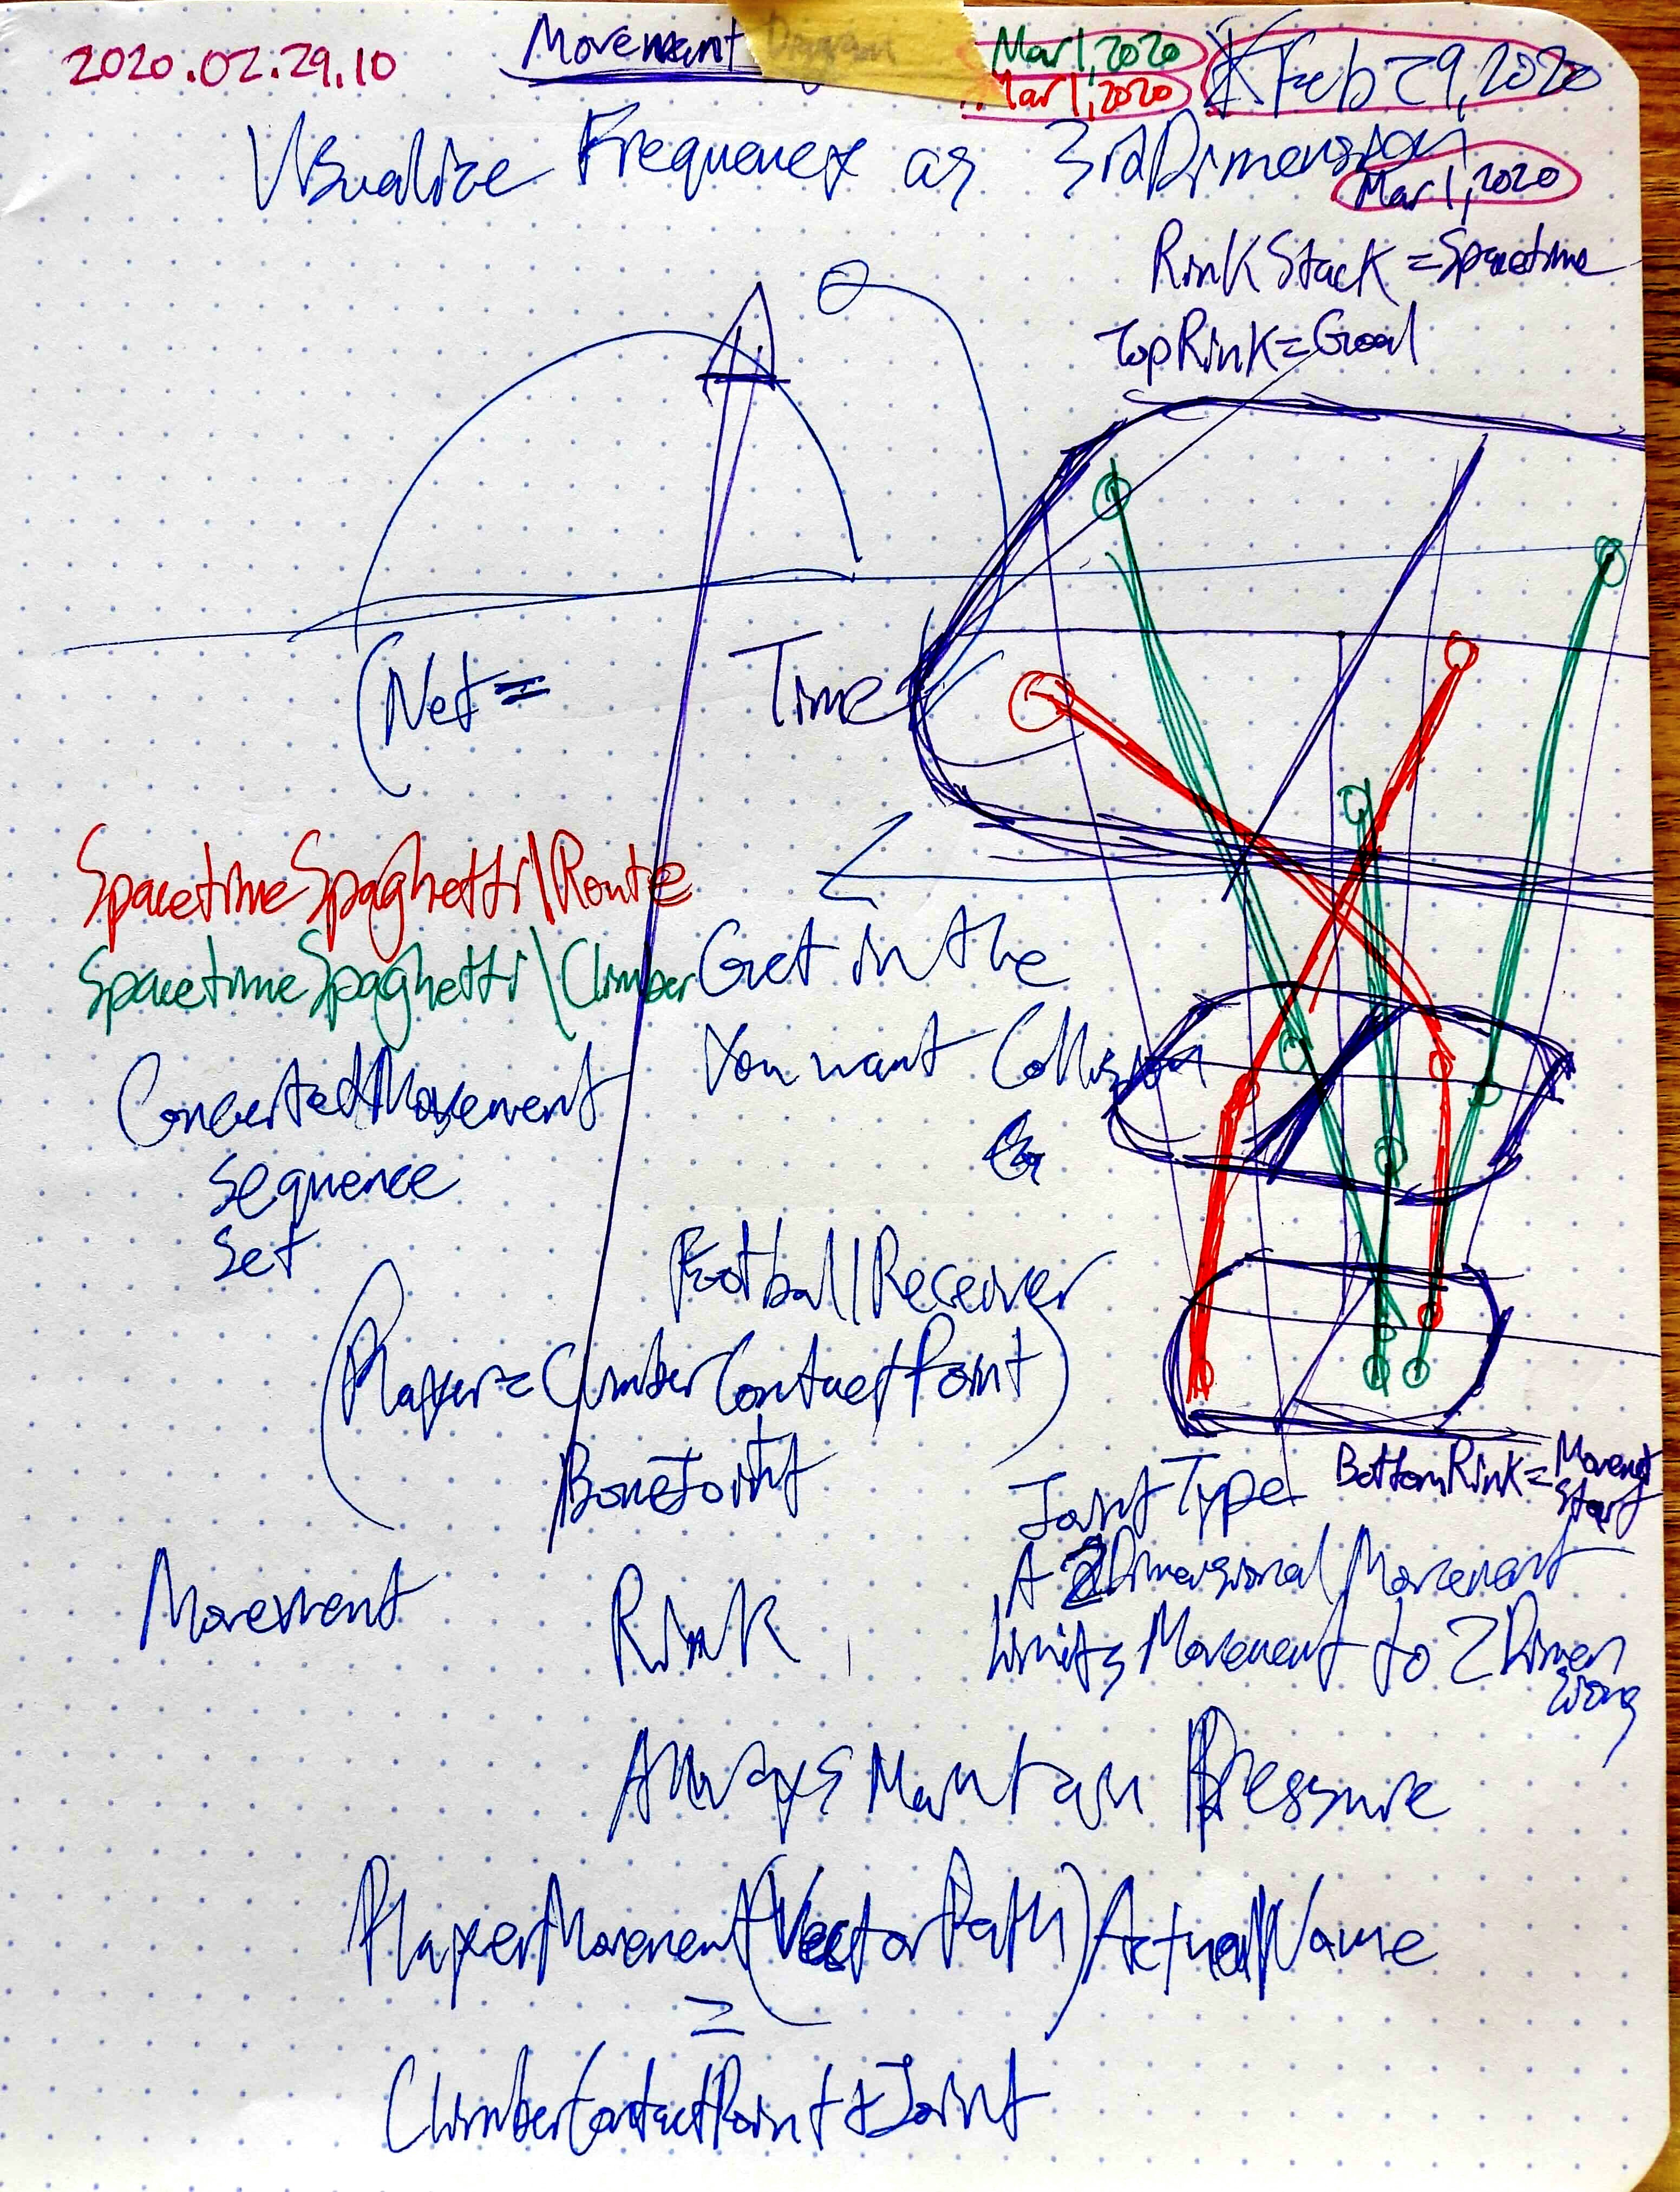 2020.02.29.10
Movement Diagram
Mar 1, 2020
Mar 1, 2020
Feb 29, 2020
Visualize Frequency as 3rd Dimension
Mar 1, 2020
RinkStack = Spacetime
TopRink = Goal
(Net =
Time
SpacetimeSpaghetti\Route
SpacetimeSpaghetti\Climber
Get in the
You want Collision
ConcertedMovement
Sequence
Set
Football/Receiver
(Player = ClimberContactPoint)
BoneJoint
BottomRink = Movement
Start
Joint Type
A 2Dimensional Movement
limits Movement to 2Dimen
sions
Movement
Rink
Always Maintain Pressure
PlayerMovement(VectorPath)ActualName
=
ClimberContactPoint & Joint